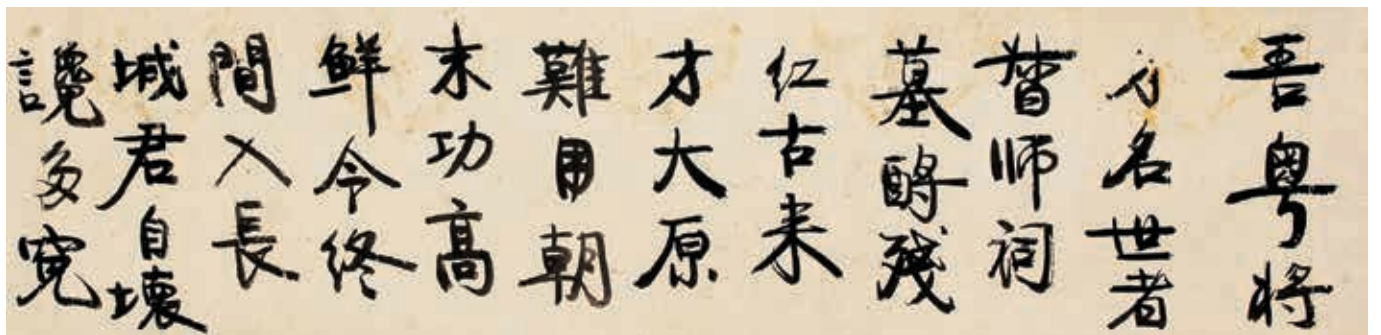 吾粤将
才名世者
督师祠
墓酹残
红古来
才大原
難用朝
末功高
鲜令终
間入長
城君自壞
讒多冤